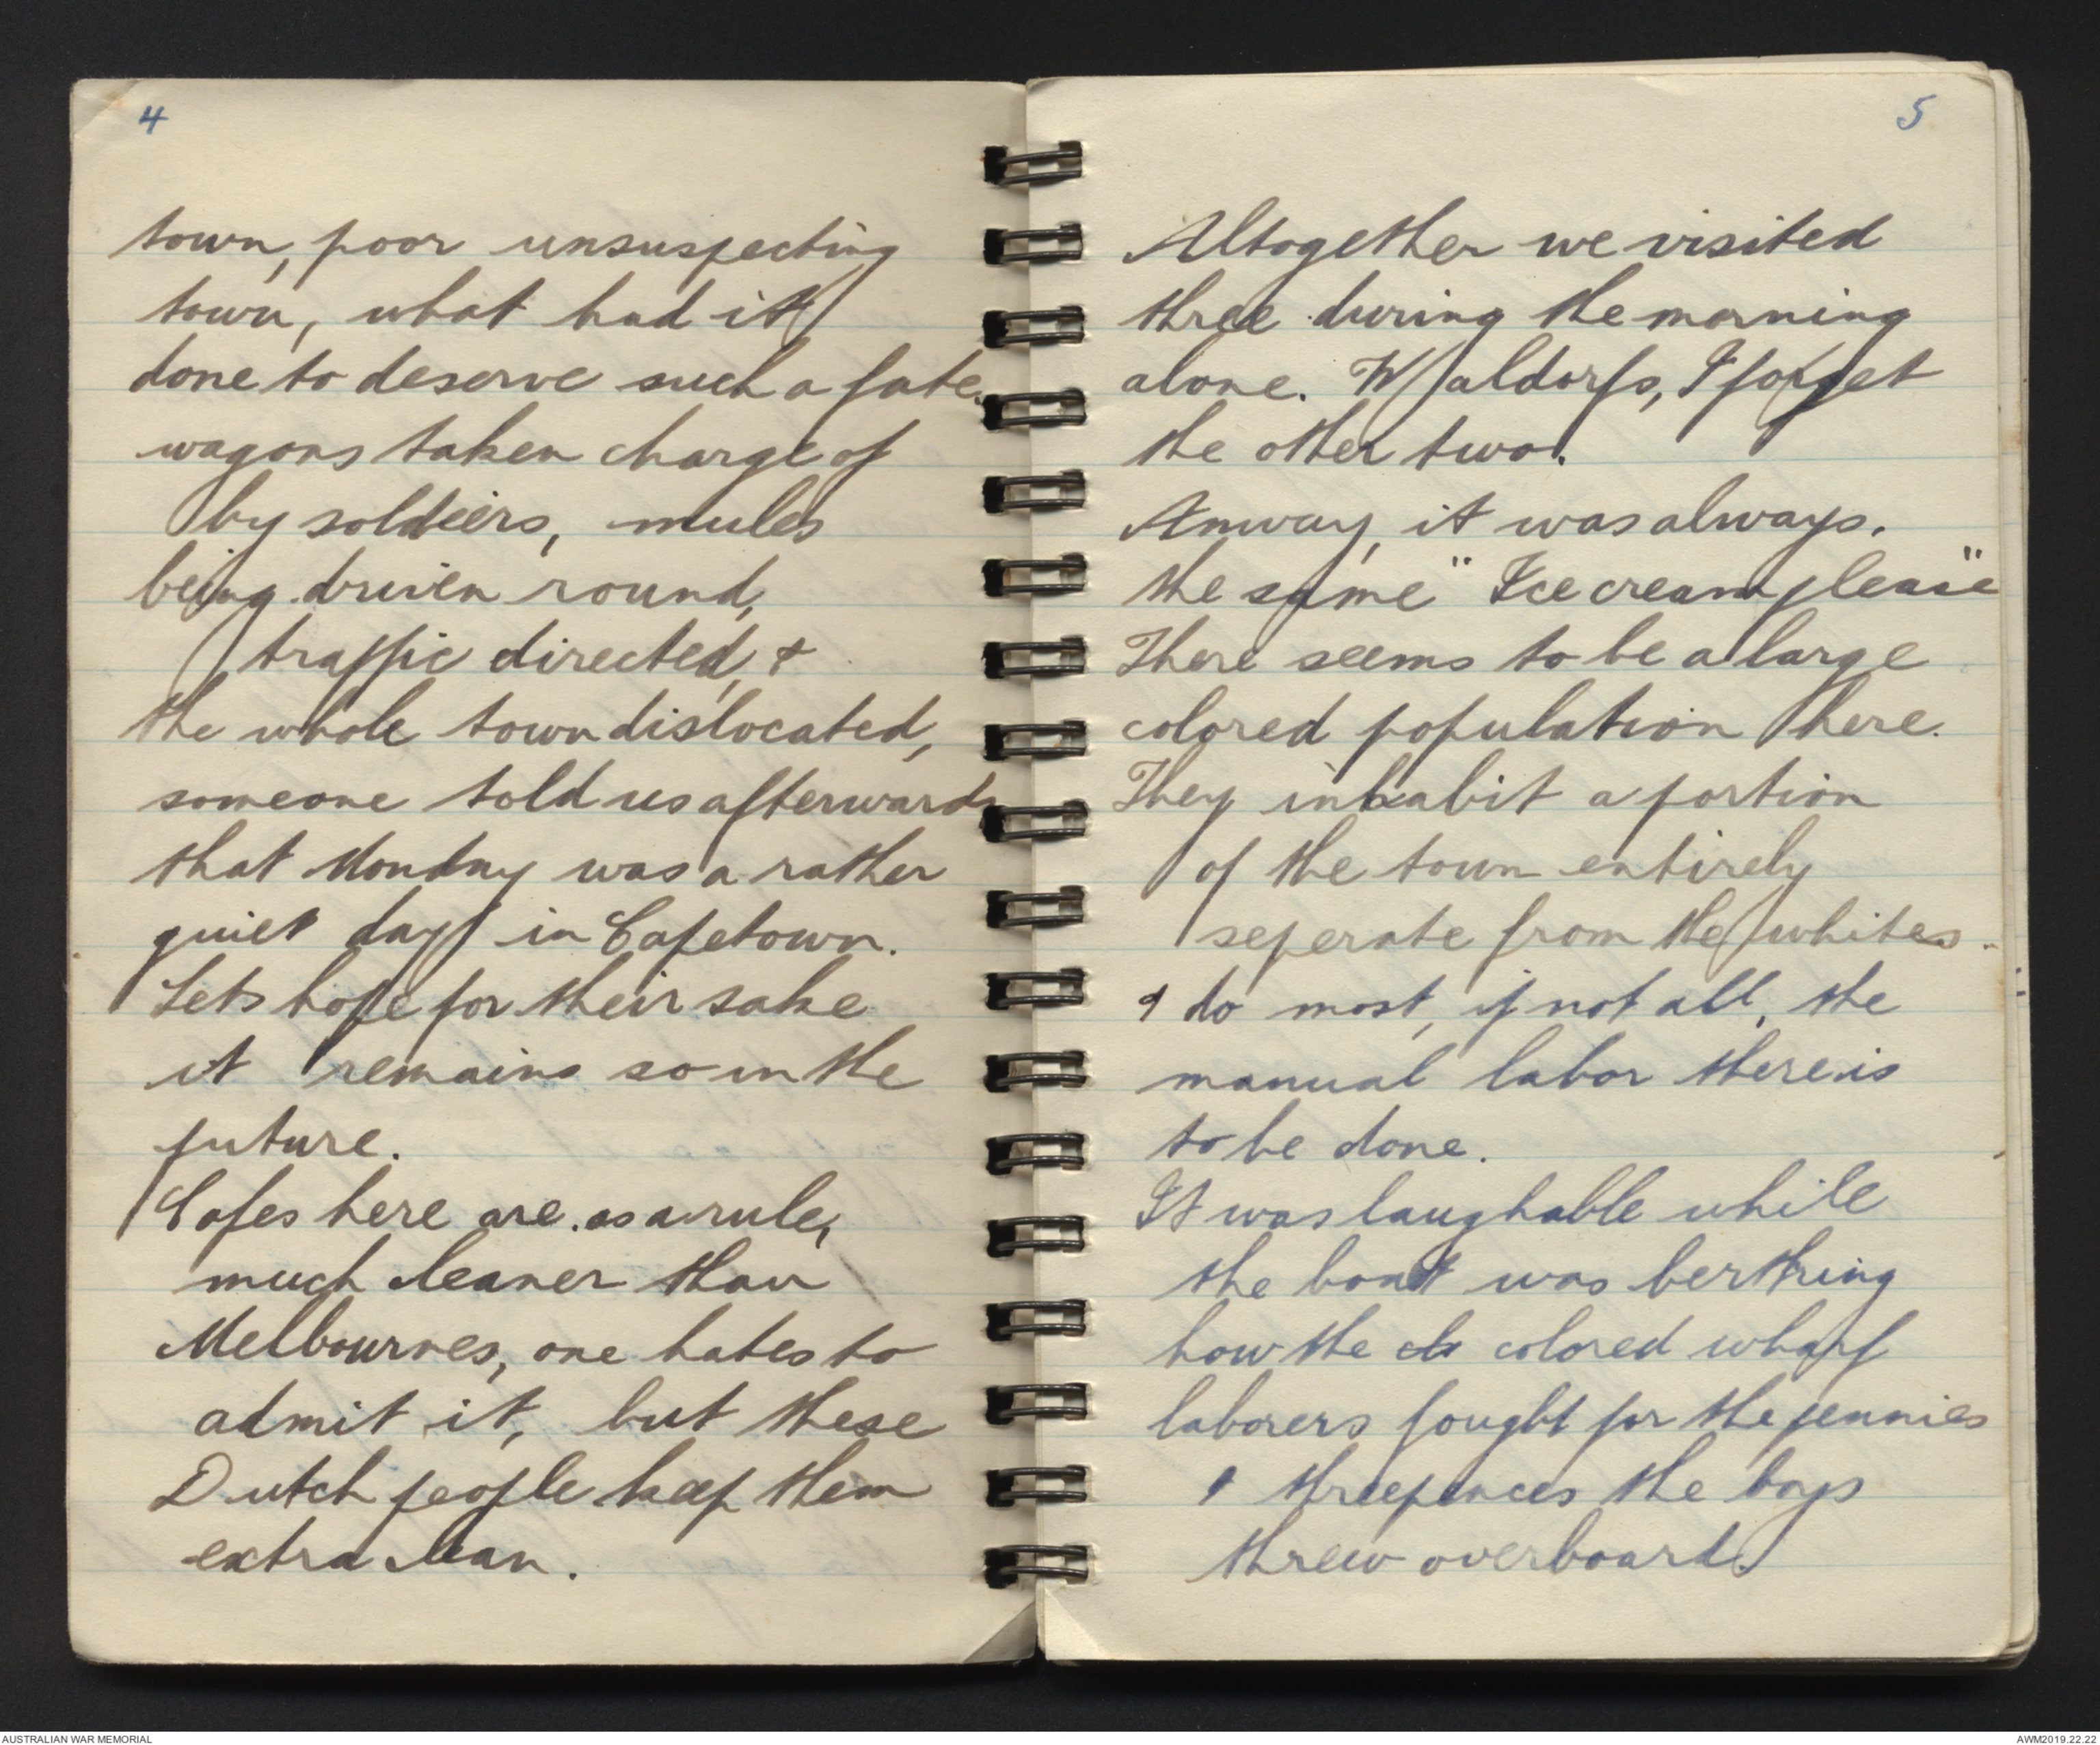 4
town, poor unsuspecting
town, what had it
done to deserve such a fate.
wagons taken charge of
by soldiers, mules
being driven round,
traffic directed, &
the whole town dislocated,
someone told us afterwards
that Monday was a rather
quiet day in Capetown.
Lets hope for their sake
it remains so in the
future.
Cafes here are as a rule,
much cleaner than
Melbournes, one hates to
admit it, but these
Dutch people keep them
extra clean.
5
Altogether we visited
three during the morning
alone. Waldorfs, I forget
the other two.
Anway, it was always.
the same "Ice cream please"
There seems to be a large
colored population here.
They inhabit a portion
of the town entirely
seperate from the whites.
& do most, if not all, the
manual labor there is
to be done.
It was laughable while
the boat was berthing
how the colored wharf
laborers fought for the pennies
& threepences the boys
threw overboard.
AUSTRALIAN WAR MEMORIAL
AWM2019.22.22